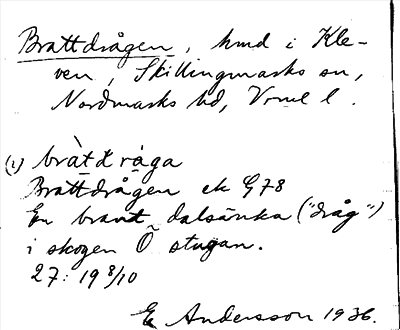 Brattdrågen, hmd i Kle-
ven, Skillingmarks sn,
Nordmarks hd, Vrml l.
(1) bràtdråga
Brattdrågen ek G78
En brant dalsänka ("dråg")
i skogen Ö stugan.
27: 19 8/10
E Andersson 1936.